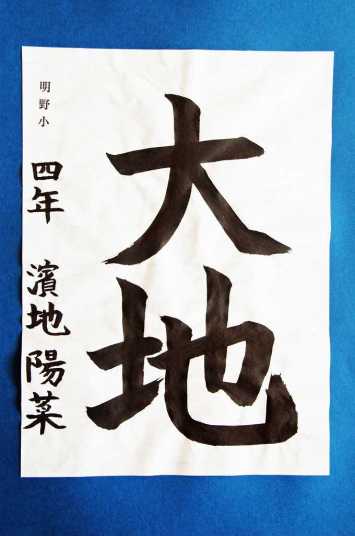 大地
明野小
四年 濱地陽菜